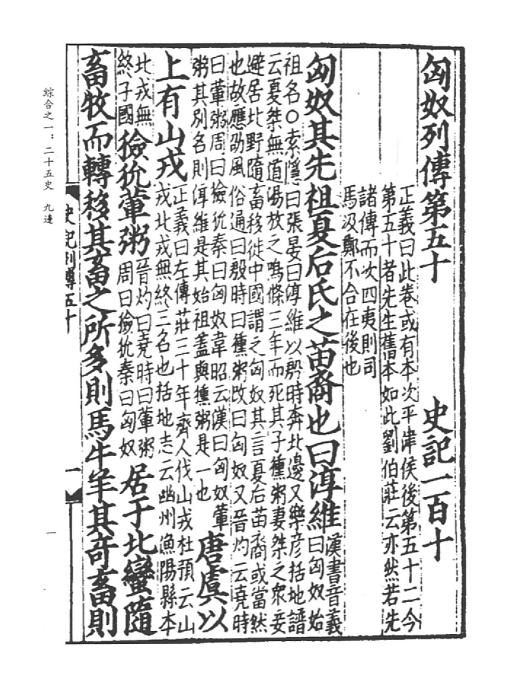 匈奴列傳第五十
史記一百十
正義曰此卷或有本次平津侯後第五十二今
第五十者先生舊本如此劉伯莊云亦然若先
諸傳而次四夷則司
馬汲鄭不合在後也
匈奴其先祖夏后氏之苗裔也曰淳維
漢書音義
曰匈奴始
祖名○索隱曰張晏曰淳維以殷時奔北邊又樂彥括地譜
云夏桀無道湯放之鳴條三年而死其子獯粥妻桀之衆妾
避居北野隨畜移徙中國謂之匈奴其言夏后苗裔或當然
也故應劭風俗通曰殷時曰獯粥改曰匈奴又晉灼云堯時
曰葷粥周曰獫狁秦曰匈奴韋昭云漢曰匈奴葷
粥其別名則淳維是其始祖蓋與獯粥是一也
唐虞以
上有山戎
正義曰左傳莊三十年齊人伐山戎杜預云山
戎北戎無終三名也括地志云幽州漁陽縣本
北戎無
終子國
獫狁葷粥
晉灼曰堯時曰葷粥
周曰獫狁秦曰匈奴
居于北蠻隨
畜牧而轉移其畜之所多則馬牛羊其奇畜則
史記列傳五十
一
綜合之一：二十五史 九
一